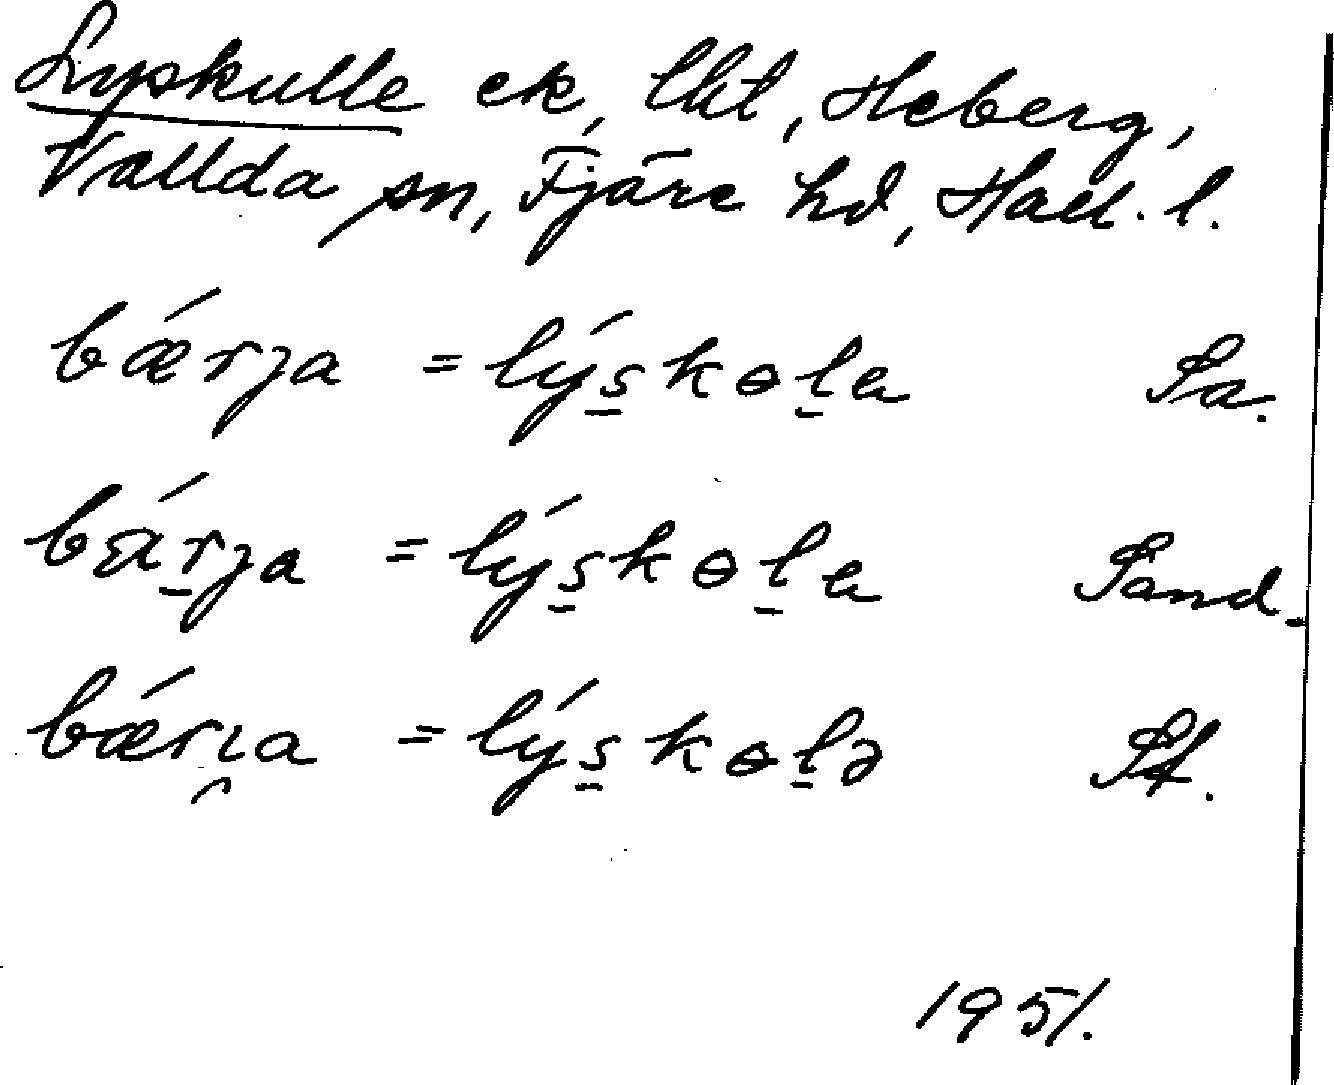 Lyskulle ek, lht, Heberg,
Vallda sn, Fjäre hd, Hall. l.
bǽrja = lýs̱kɵḻa Sa.
bǽṟja = lýs̱kɵḻa Sand.
bǽrı̯a = lýs̱kɵḻə Sf.
1951.